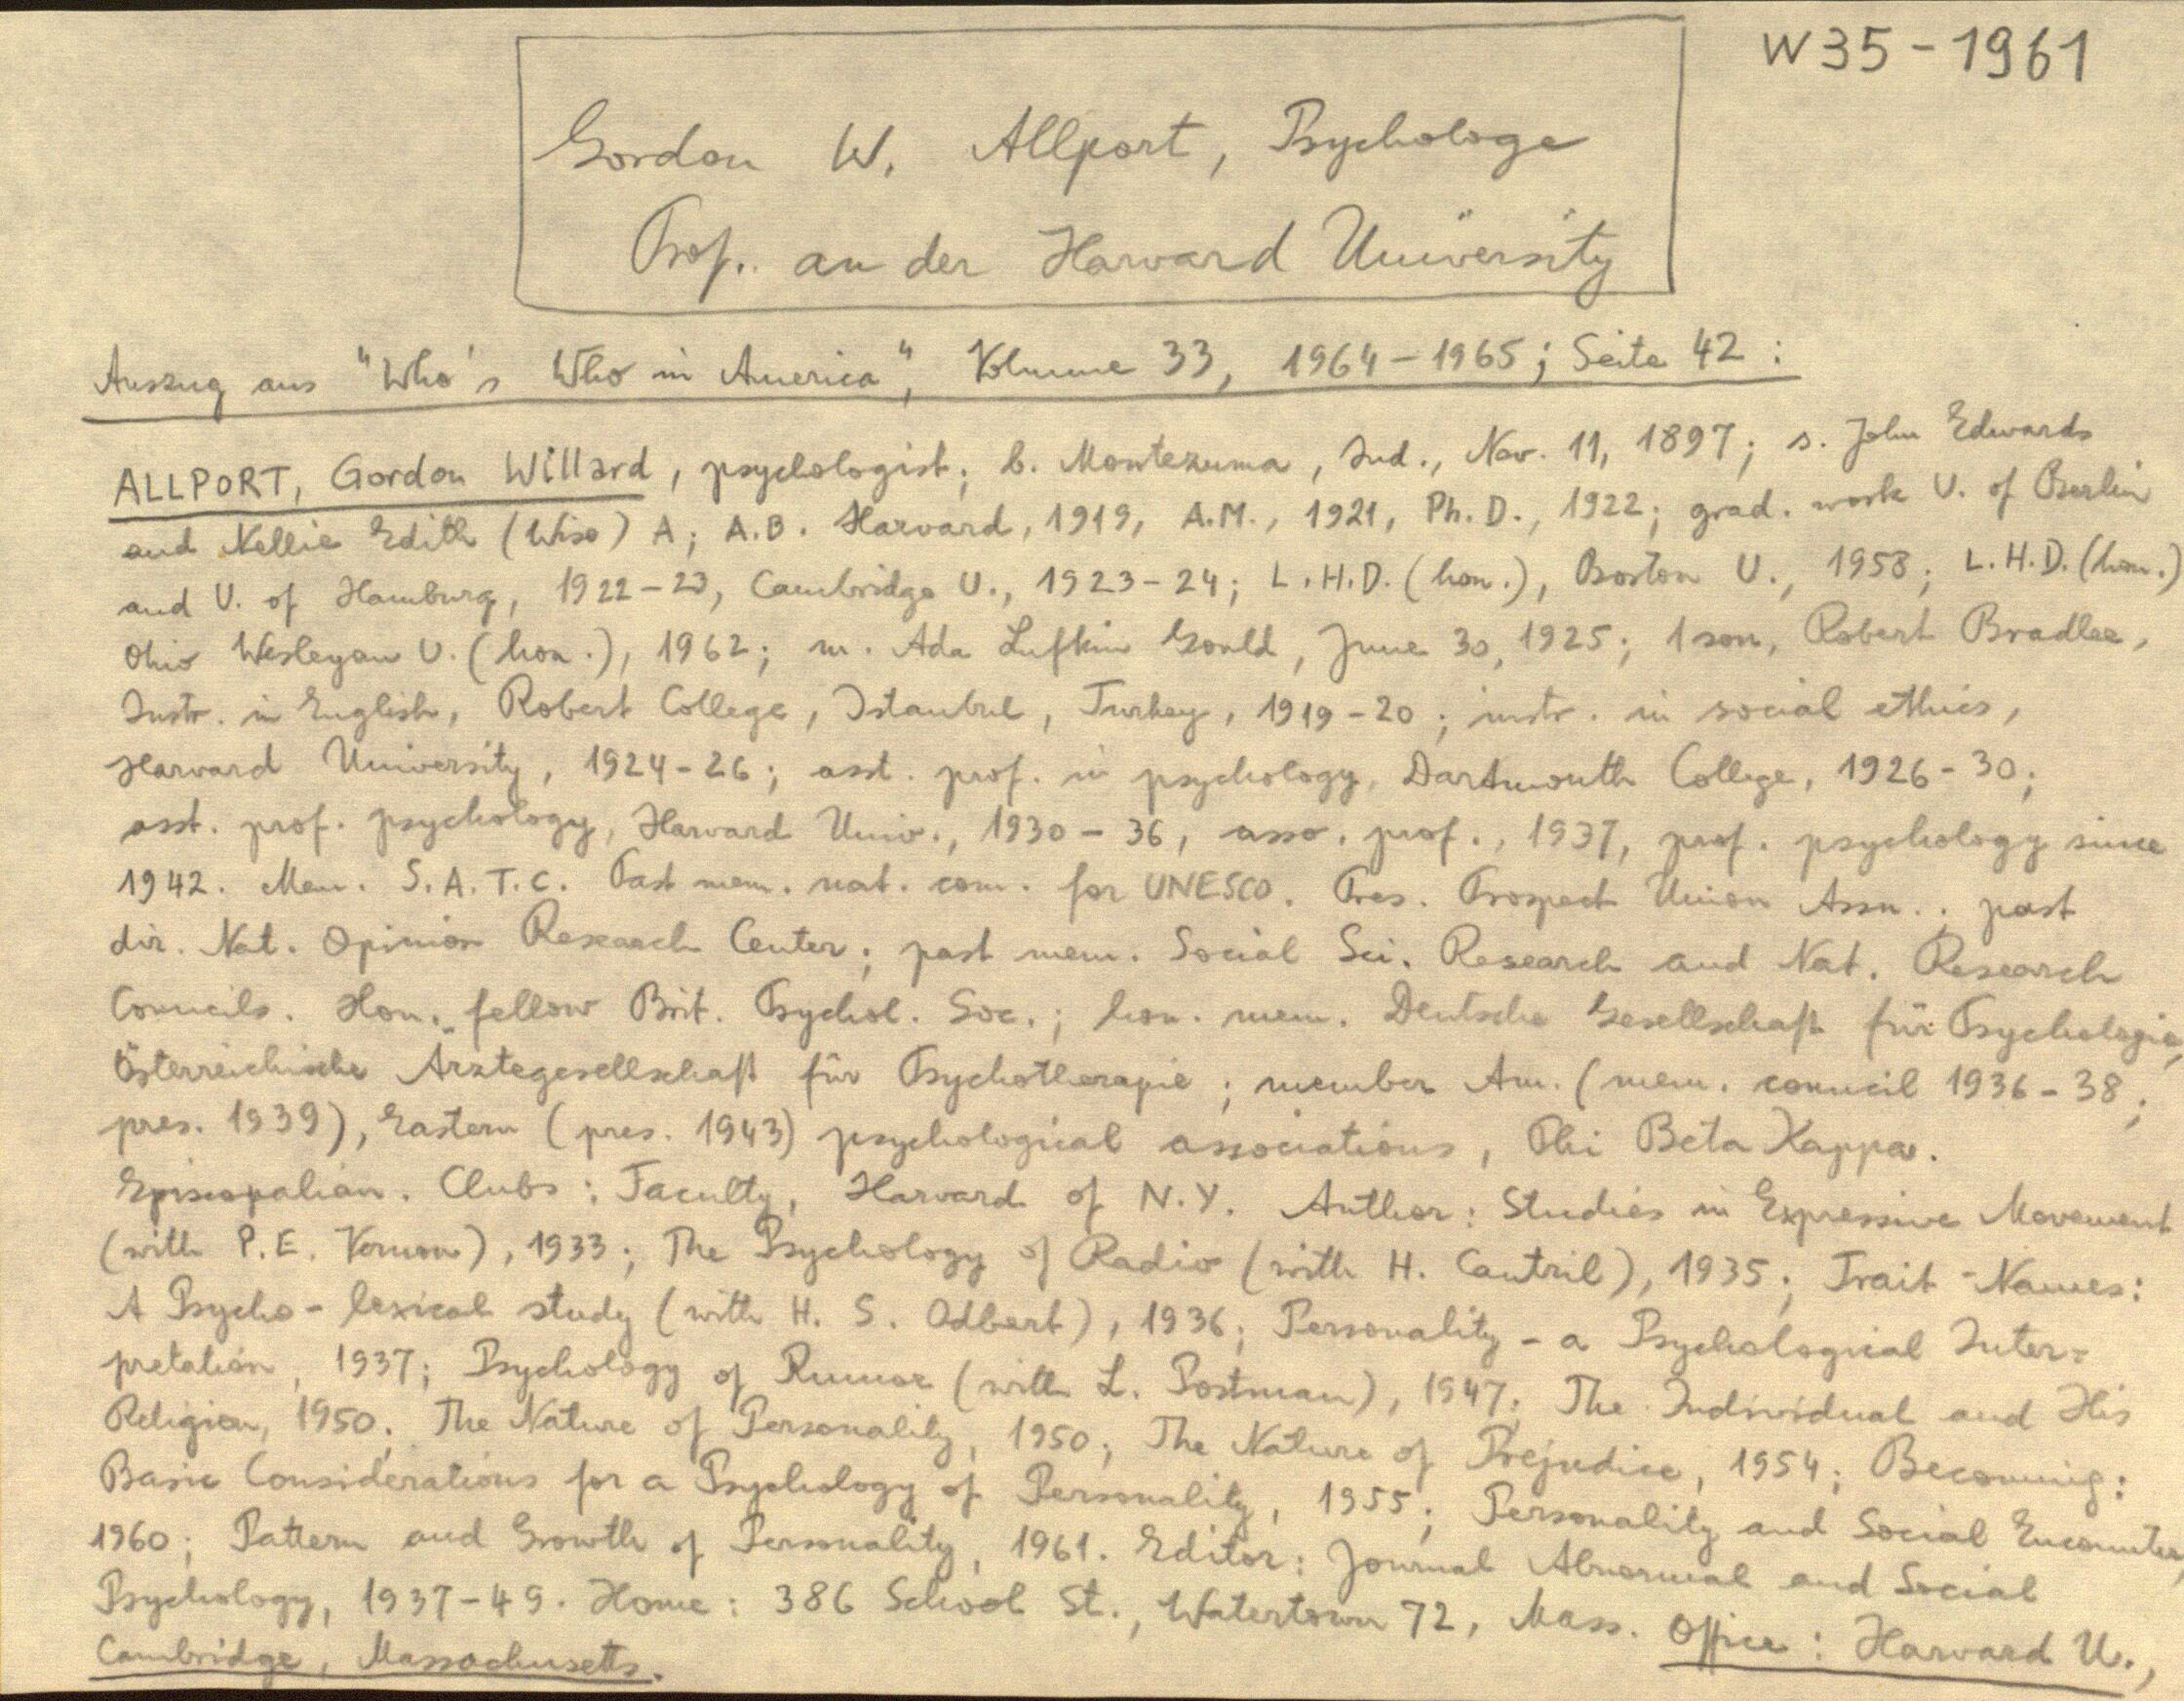 W35-1961
Gordon W. Allport, Psychologe
Prof. an der Harvard University
Auszug aus "Who's Who in America", Volume 33, 1964-1965; Seite 42:
ALLPORT, Gordon Willard, psychologist; b. Montezuma, Ind., Nov. 11, 1897; s. John Edwards
and Nellie Edith (Wise) A; A.B. Harvard, 1919, A.M., 1921, Ph.D., 1922; grad. work U. of Berlin
and U. of Hamburg, 1922-23, Cambridge U., 1923-24; L.H.D. (hon.), Boston U., 1958; L.H.D. (hon.)
Ohio Wesleyan U. (hon.), 1962; m. Ada Lufkin Gould, June 30, 1925; 1 son, Robert Bradlee,
Instr. in English, Robert College, Istanbul, Turkey, 1919-20; instr. in social ethics,
Harvard University, 1924-26; asst. prof. in psychology, Dartmouth College, 1926-30;
asst. prof. psychology, Harvard Univ., 1930-36, asso. prof., 1937, prof. psychology since
1942. Mem. S.A.T.C. Past mem. nat. com. for UNESCO. Pres. Prospect Union Assn.; past
dir. Nat. Opinion Research Center; past mem. Social Sci. Research and Nat. Research
Councils. Hon. fellow Brit. Psychol. Soc.; hon. mem. Deutsche Gesellschaft für Psychologie,
Österreichische Ärztegesellschaft für Psychotherapie; member Am. (mem. council 1936-38;
pres. 1939), Eastern (pres. 1943) psychological associations, Phi Beta Kappa.
Episcopalian. Clubs: Faculty, Harvard of N.Y. Author: Studies in Expressive Movement
(with P.E. Vernon), 1933; The Psychology of Radio (with H. Cantril), 1935; Trait-Names:
A Psycho-lexical study (with H. S. Odbert), 1936; Personality - a Psychological Inter=
pretation, 1937; Psychology of Rumor (with L. Postman), 1947; The Individual and His
Religion, 1950; The Nature of Personality, 1950; The Nature of Prejudice, 1954; Becoming:
Basic Considerations for a Psychology of Personality, 1955; Personality and Social Encounter,
1960; Pattern and Growth of Personality, 1961. Editor: Journal Abnormal and Social
Psychology, 1937-49. Home: 386 School St., Watertown 72, Mass. Office: Harvard U.,
Cambridge, Massachusetts.